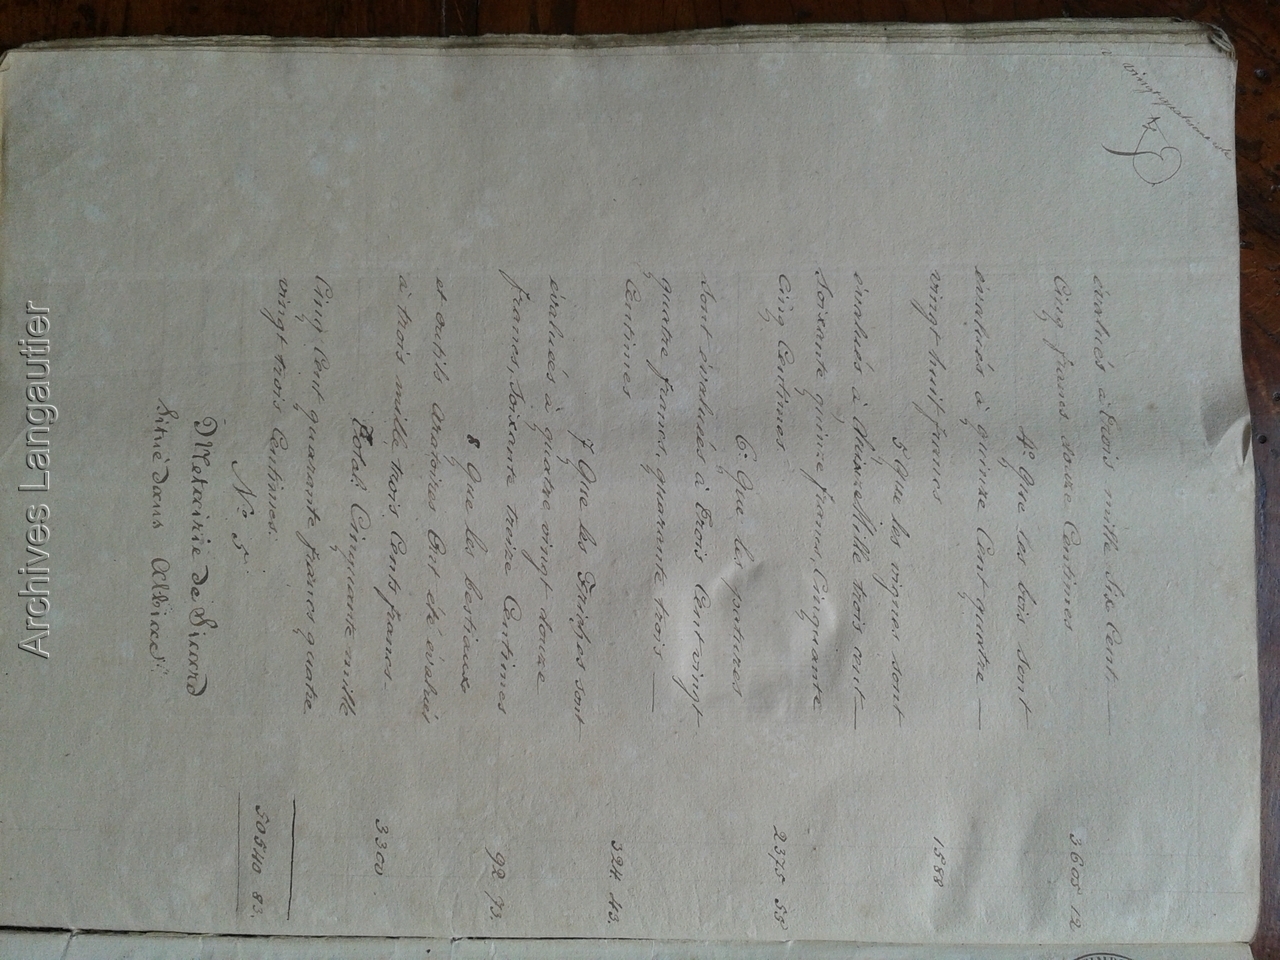 évalués à trois mille six cent
cinq francs douze centimes 3605 12
4° Que les bois sont
évalués à quinze cent quatre
vingt huit francs 1588
5° Que les vignes sont
évalués à deux mille trois cent
soixante quinze francs, cinquante
cinq centimes 2375 55
6° Que les patures
sont évalués à trois cent vingt
quatre francs, quarante trois
centimes 324 43.
7 Que les friches sont
évalués à quatre vingt douze
francs, soixante treize centimes 92 73.
8 Que les bestiaux
et outils aratoires ont été évalués
à trois mille trois cents francs 3300.
Total: Cinquante mille
cinq cent quarante francs quatre
vingt trois centimes. 50540 83.
N° 5
Metairie de Sicard
Située dans
Archives Langautier